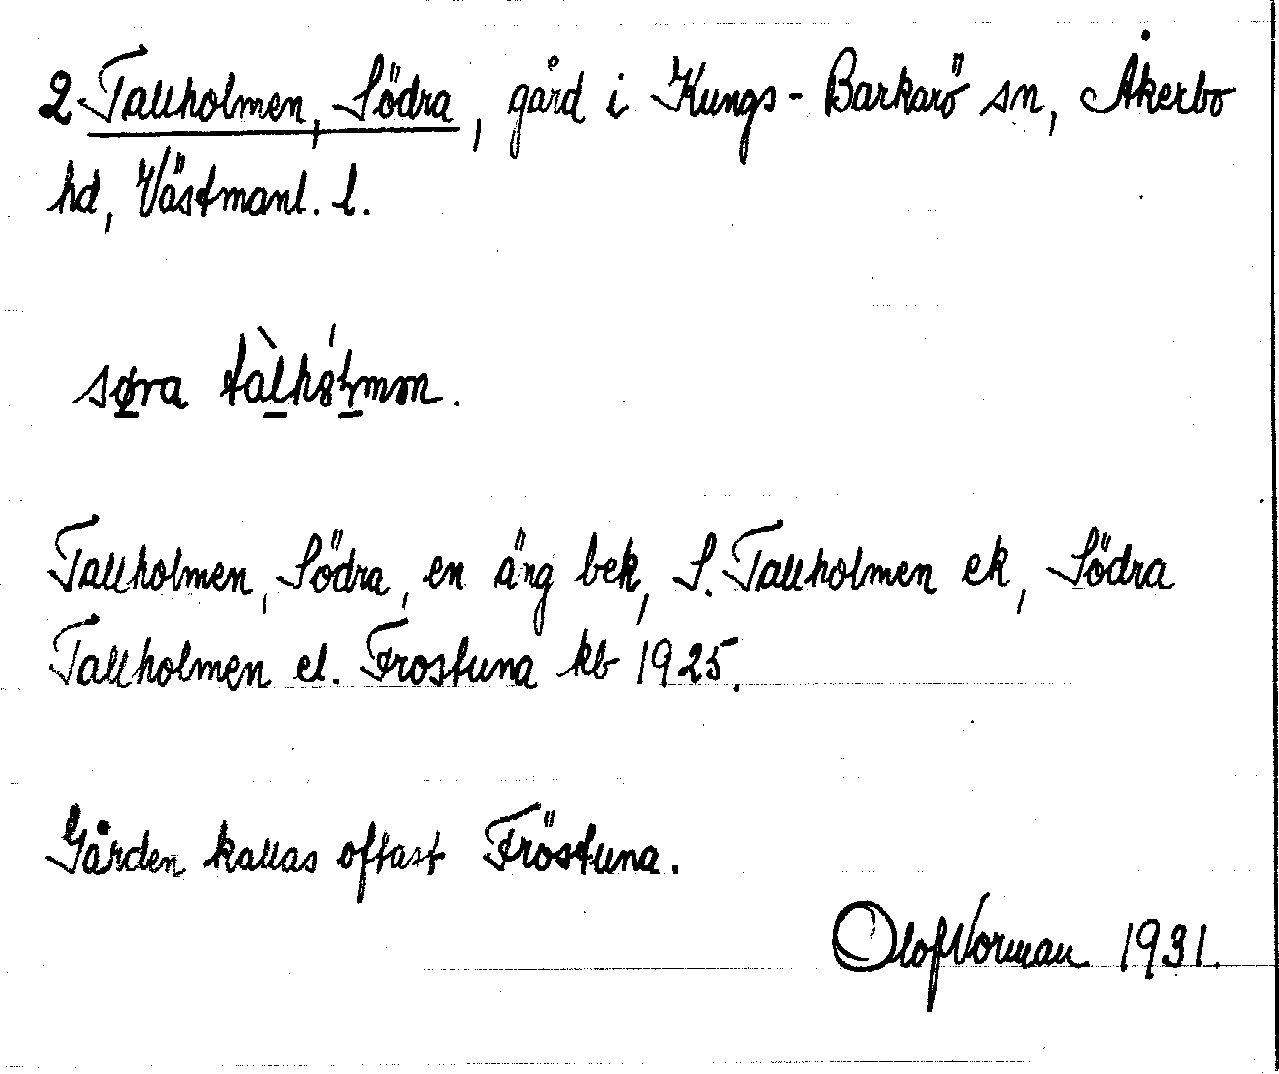 2 Tallholmen, Södra, gård i Kungs-Barkarö sn, Åkerbo
hd, Västmanl. l.
søra tàlhólmən.
Tallholmen, Södra, en äng bek, S. Tallholmen ek, Södra
Tallholmen el. Frostuna kb 1925.
Gården kallas oftast Fröstuna.
Olof Norman 1931.